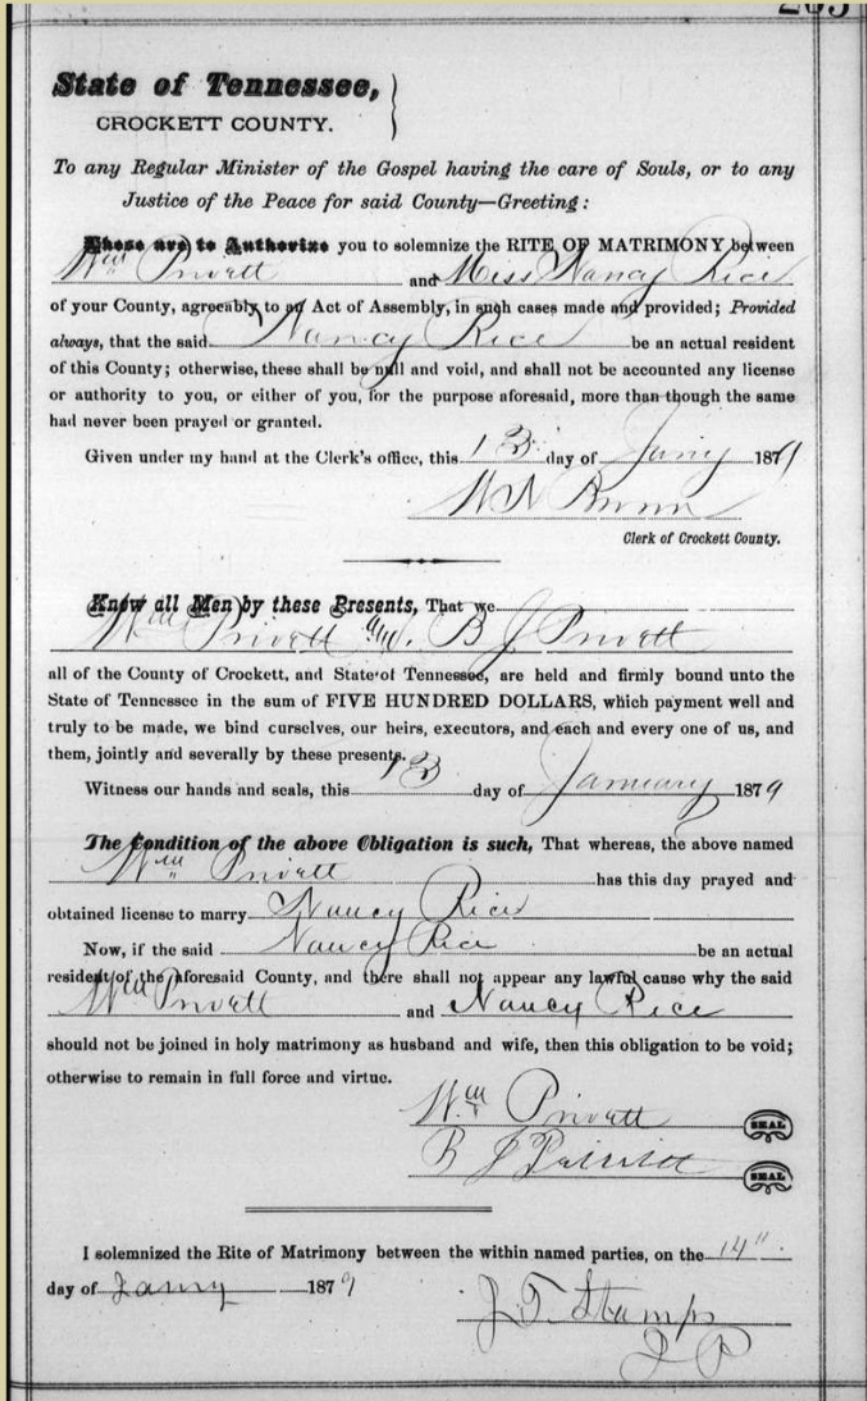 State of Tennessee,
CROCKETT COUNTY.
To any Regular Minister of the Gospel having the care of Souls, or to any
Justice of the Peace for said County—Greeting:
These are to Authorize you to solemnize the RITE OF MATRIMONY between
Wm Privett and Miss Nancy Rice
of your County, agreeably to an Act of Assembly, in such cases made and provided; Provided
always, that the said Nancy Rice be an actual resident
of this County; otherwise, these shall be null and void, and shall not be accounted any license
or authority to you, or either of you, for the purpose aforesaid, more than though the same
had never been prayed or granted.
Given under my hand at the Clerk's office, this 13 day of Jany 1879
W N
Clerk of Crockett County.
Know all Men by these Presents, That we
Wm Privett and B J Privett
all of the County of Crockett, and State of Tennessee, are held and firmly bound unto the
State of Tennessee in the sum of FIVE HUNDRED DOLLARS, which payment well and
truly to be made, we bind ourselves, our heirs, executors, and each and every one of us, and
them, jointly and severally by these presents.
Witness our hands and seals, this 13 day of January 1879
The Condition of the above Obligation is such, That whereas, the above named
Wm Privett has this day prayed and
obtained license to marry Nancy Rice
Now, if the said Nancy Rice be an actual
resident of the aforesaid County, and there shall not appear any lawful cause why the said
Wm Privett and Nancy Rice
should not be joined in holy matrimony as husband and wife, then this obligation to be void;
otherwise to remain in full force and virtue.
Wm Privett SEAL
B J Privett SEAL
I solemnized the Rite of Matrimony between the within named parties, on the 14"
day of Jany 1879
J. T. Stamps
J P